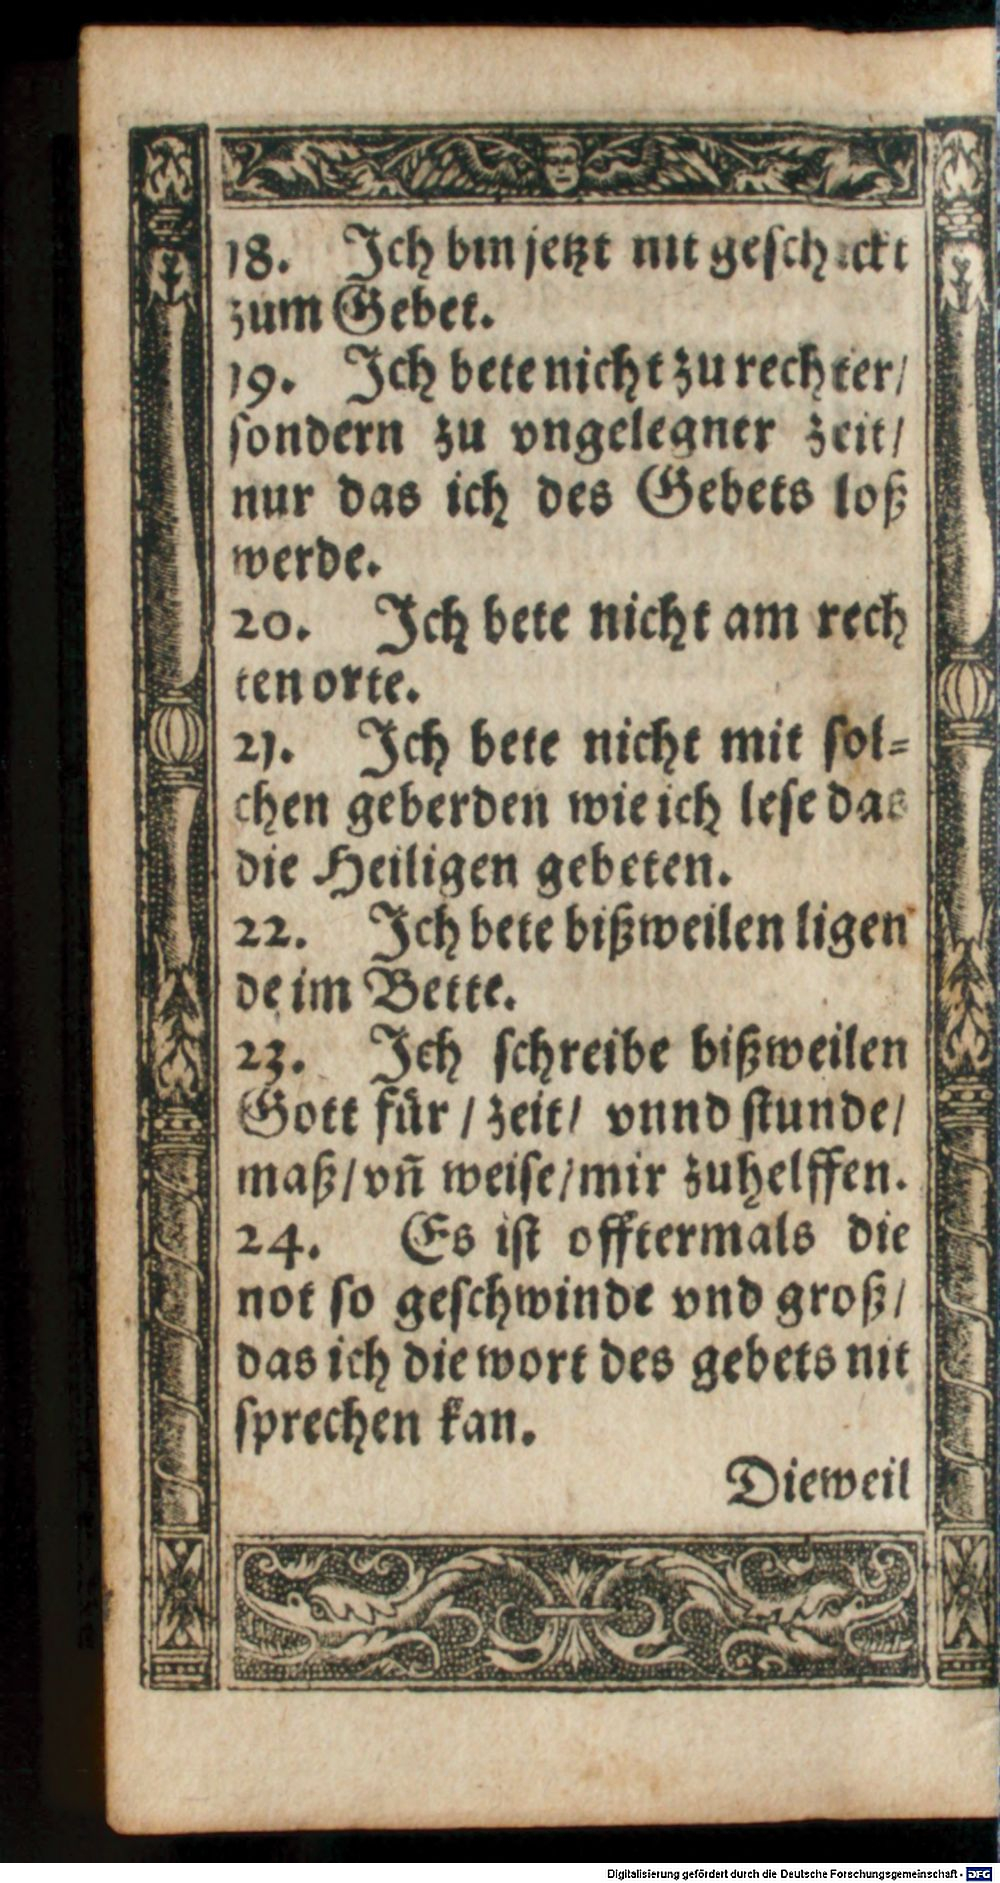 18. Ich bin jetzt nit geschickt
zum Gebet.
19. Ich bete nicht zu rechter/
sondern zu vngelegner zeit/
nur das ich des Gebets loß
werde.
20. Ich bete nicht am rech
ten orte.
21. Ich bete nicht mit sol=
chen geberden wie ich lese das
die Heiligen gebeten.
22. Ich bete bißweilen ligen
de im Bette.
23. Ich schreibe bißweilen
Gott für / zeit / vnnd stunde/
maß/ vñ weise/ mir zuhelffen.
24. Es ist offtermals die
not so geschwinde vnd groß/
das ich die wort des gebets nit
sprechen kan.
Dieweil
Digitalisierung gefördert durch die Deutsche Forschungsgemeinschaft - DFG